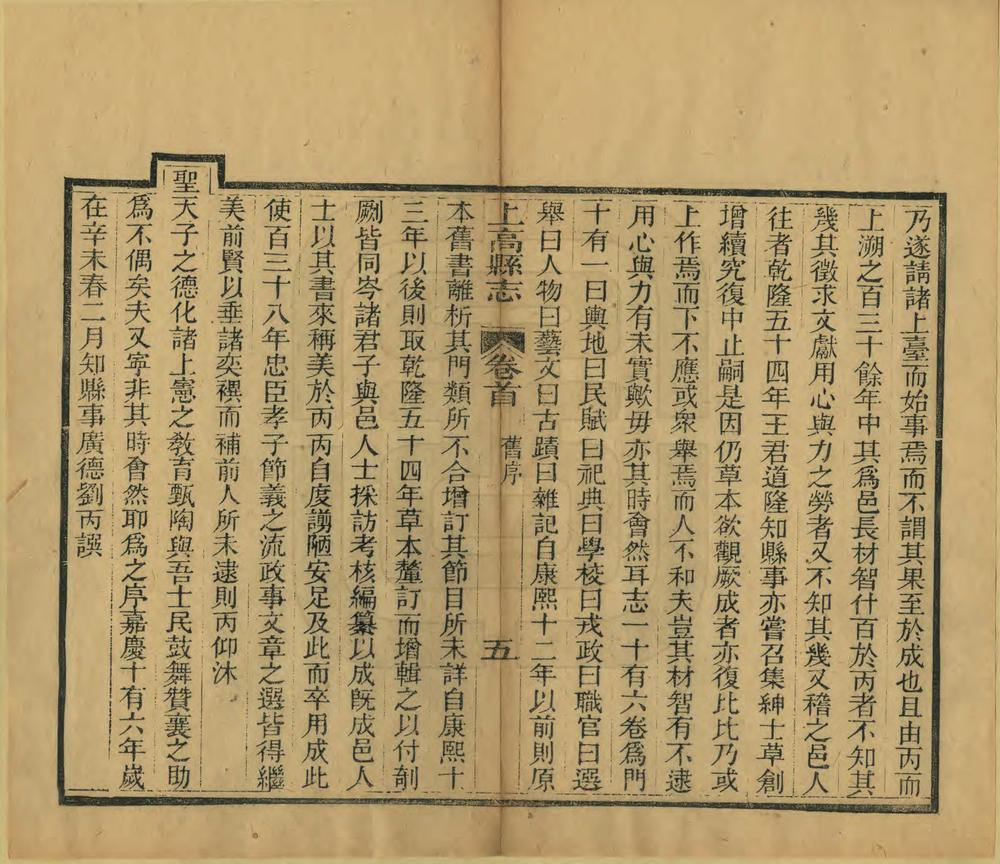 乃遂請諸上臺而始事焉而不謂其果至於成也且由丙而
上溯之百三十餘年中其爲邑長材智什百於丙者不知其
幾其徵求文獻用心與力之勞者又不知其幾又稽之邑人
往者乾隆五十四年王君道隆知縣事亦嘗召集紳士草創
增續究復中止嗣是因仍草本欲觀厥成者亦復比比乃或
上作焉而下不應或衆舉焉而人不和夫豈其材智有不逮
用心與力有未實歟毋亦其時會然耳志一十有六卷爲門
十有一曰輿地曰民賦曰祀典曰學校曰戎政曰職官曰選
舉曰人物曰藝文曰古蹟曰雜記自康熙十二年以前則原
上高縣志 卷首 舊序 五
本舊書離析其門類所不合增訂其節目所未詳自康熙十
三年以後則取乾隆五十四年草本釐訂而增輯之以付剞
劂皆同岑諸君子與邑人士採訪考核編纂以成旣成邑人
士以其書來稱美於丙丙自度謭陋安足及此而卒用成此
使百三十八年忠臣孝子節義之流政事文章之選皆得繼
美前賢以垂諸奕禩而補前人所未逮則丙仰沐
聖天子之德化諸上憲之教育甄陶與吾士民鼓舞贊襄之助
爲不偶矣夫又寧非其時會然耶爲之序嘉慶十有六年歲
在辛未春二月知縣事廣德劉丙譔